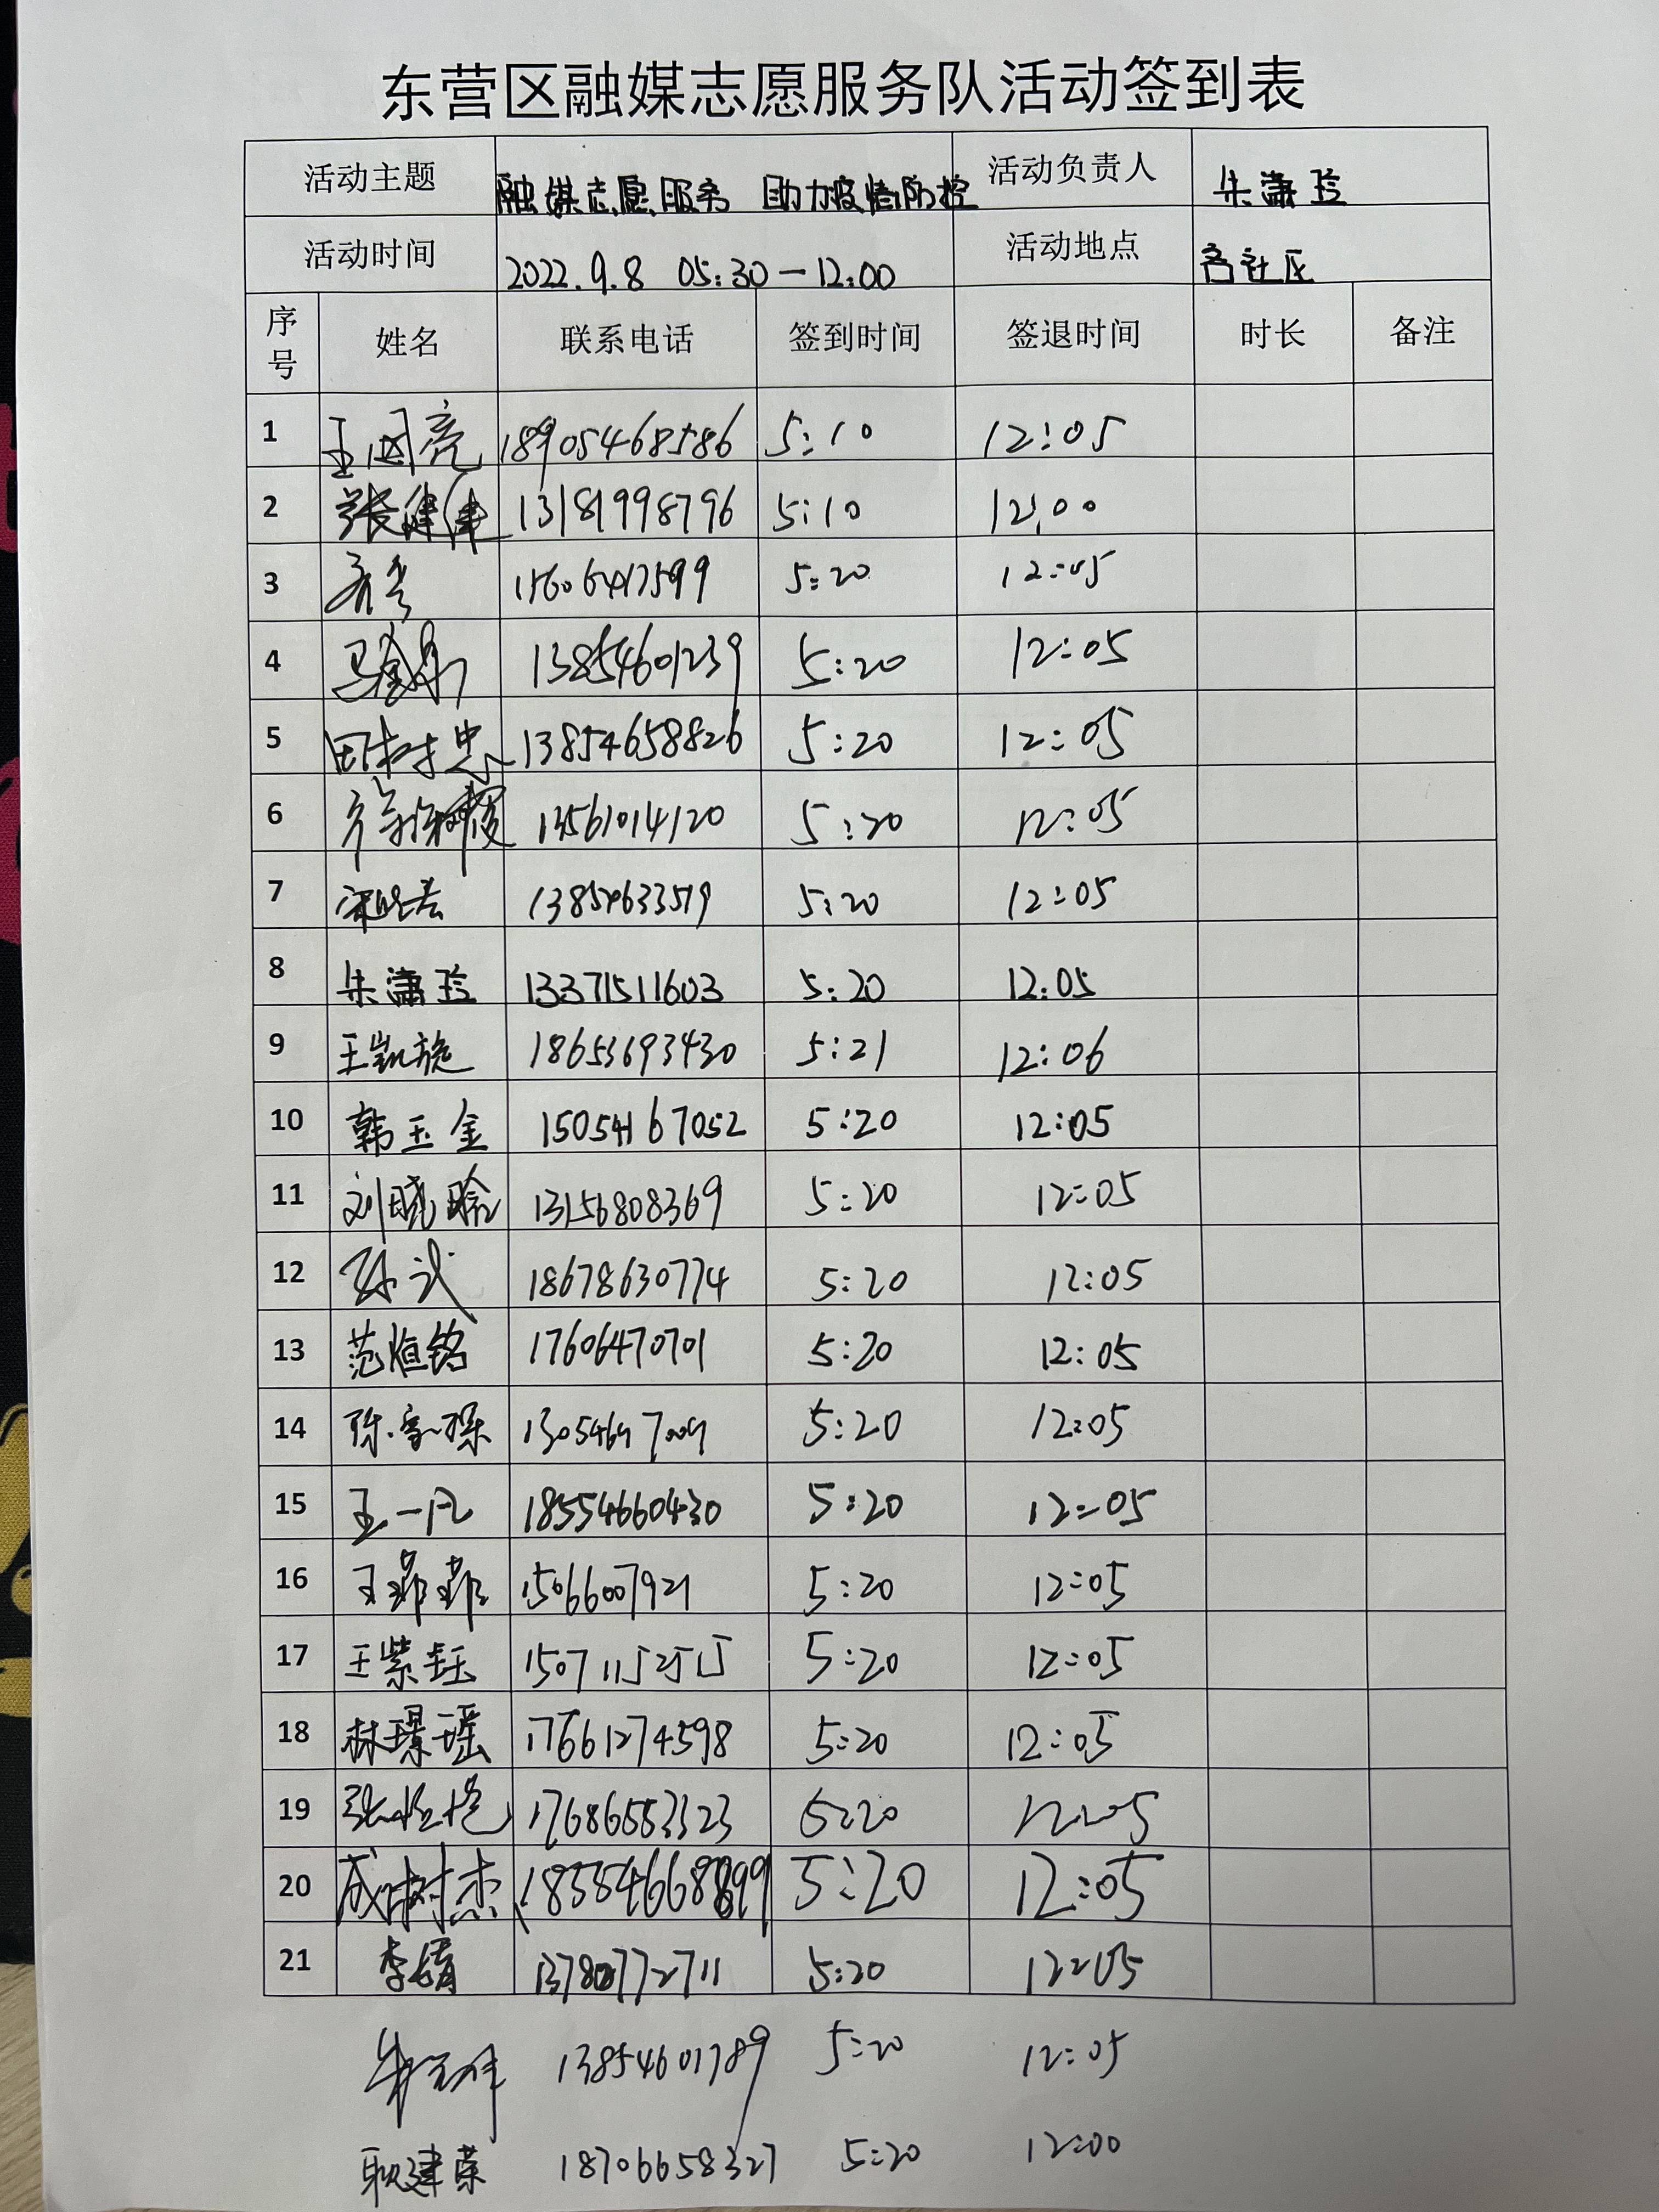 东营区融媒志愿服务队活动签到表
活动主题 融媒志愿服务 助力疫情防控 活动负责人 朱潇玲
活动时间 2022.9.8 05:30—12:00 活动地点 各社区
序号 姓名 联系电话 签到时间 签退时间 时长 备注
1 王国亮 18905468586 5:10 12:05
2 13181998796 5:10 12:00
3 5:20 12:05
4 13854601239 5:20 12:05
5 田树忠 13854658826 5:20 12:05
6 13561014120 5:20 12:05
7 5:20 12:05
8 朱潇玲 13371511603 5:20 12:05
9 王凯旋 18653693430 5:21 12:06
10 韩玉金 15054167052 5:20 12:05
11 刘晓晗 13156808369 5:20 12:05
12 孙武 18678630774 5:20 12:05
13 范恒铭 17606470701 5:20 12:05
14 5:20 12:05
15 王一凡 18554660430 5:20 12:05
16 王菲菲 15066007921 5:20 12:05
17 王紫钰 15071152515 5:20 12:05
18 林璟瑶 17661274598 5:20 12:05
19 17686553323 5:20 12:05
20 成树杰 18554668899 5:20 12:05
21 李倩 5:20 12:05
13854601789 5:20 12:05
耿建荣 18706658327 5:20 12:00